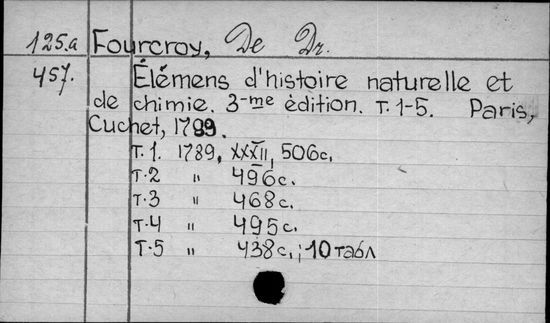 125.a Fourcroy, De Dr.
457. Élémens d'histoire naturelle et
de chimie. 3-me édition. T. 1-5. Paris,
Cuchet, 1789.
T.1. 1789, XXXII, 506c.
T.2 " 496c.
T.3 " 468c.
T.4 " 495c.
T.5 " 438c.; 10 табл